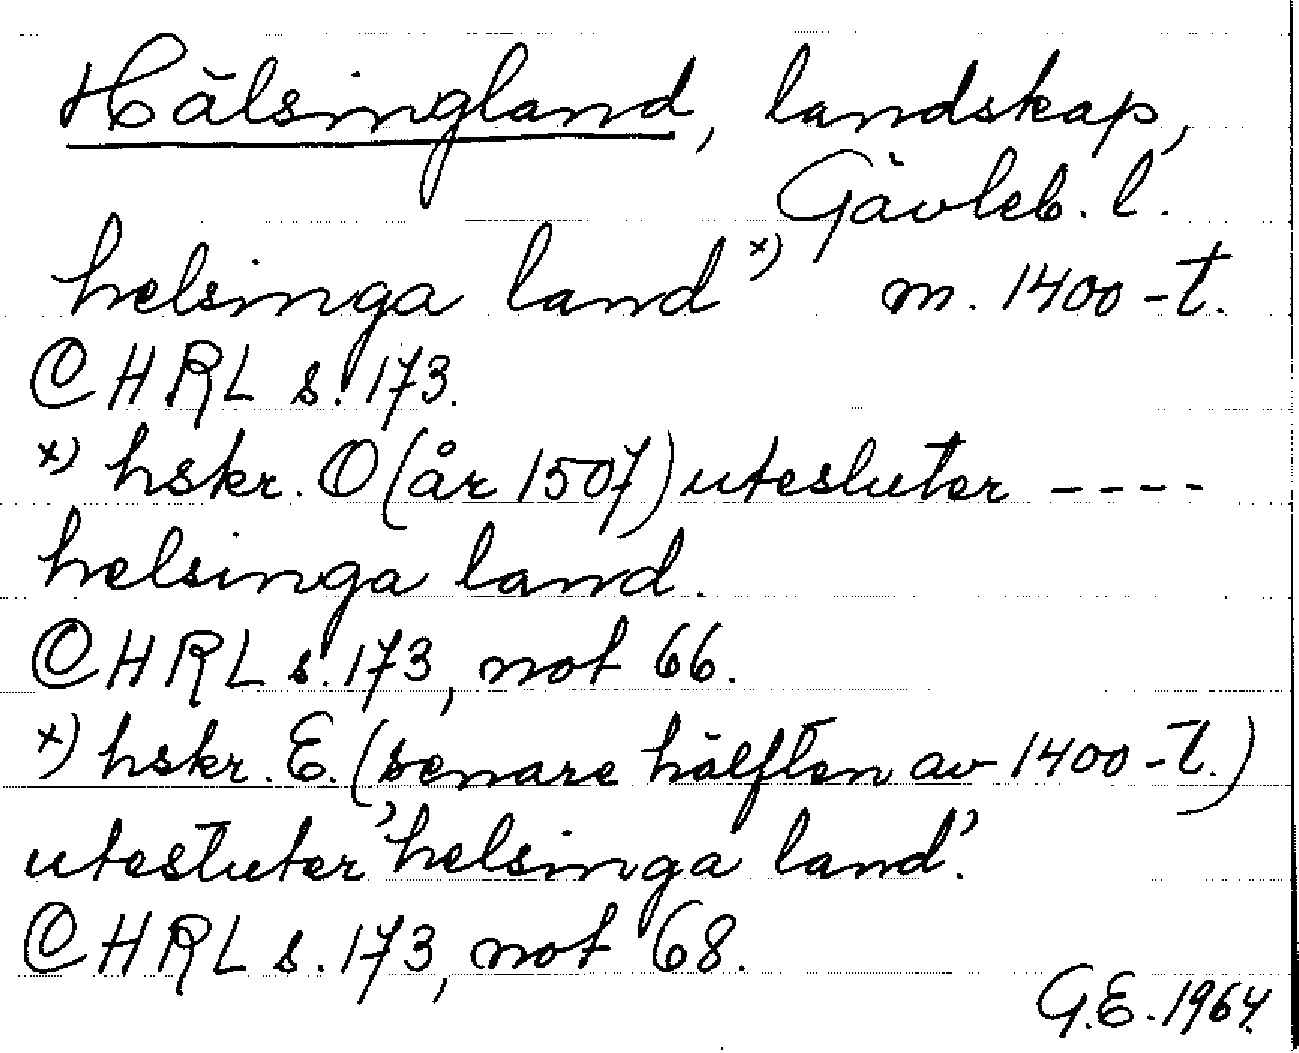 Hälsingland, landskap,
Gävleb. l.
helsinga land x) m. 1400-t.
CHRL s. 173.
x) hskr. O (år 1507) utesluter ----
helsinga land.
CHRL s. 173, not 66.
x) hskr. E. (senare hälften av 1400-t.)
utesluter 'helsinga land'.
CHRL s. 173, not 68.
G.E. 1964.